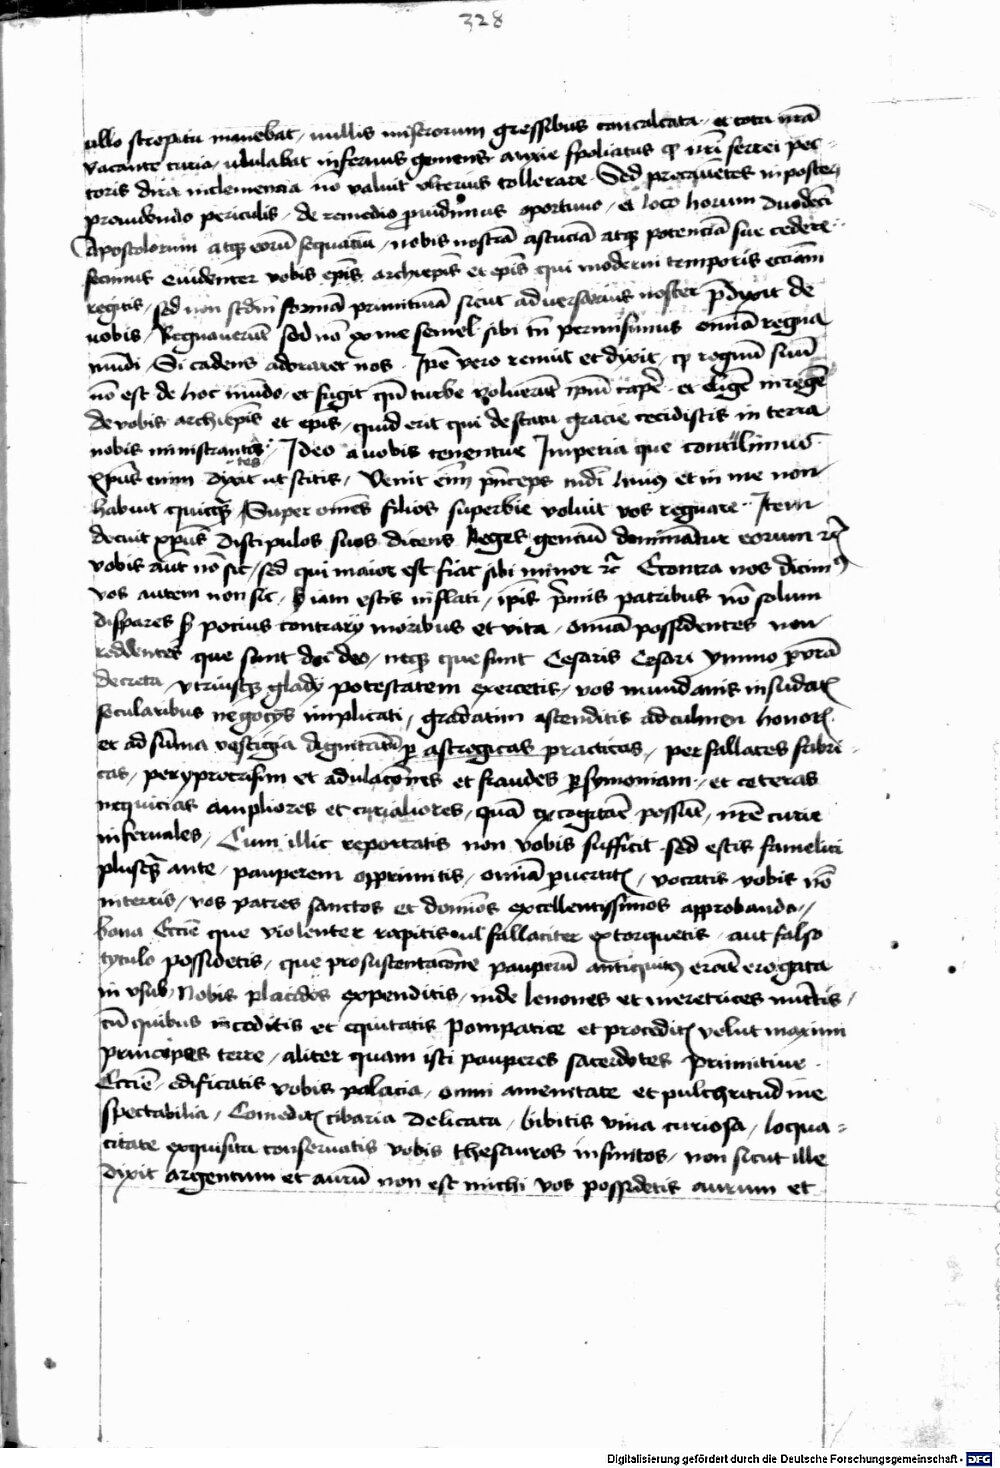 328
ullo strepitu manebat, nullis miserorum gressibus conculcata, et tota nr̄a
vacante curia, ululabat infernus gemens anxie spoliatus q̨ nr̄i ferrei pec-
toris dira inclemencia nō valuit ulterius tollerare. Sed precaventes in poster
providendo periculis, de remedio providimus oportuno, et loco horum duodecī
Apostolorum atq̨ eorū sequaciū, nobis nostrā astuciā atq̨ potenciā sue cedere
fecimus evidenter vobis ep̄is archiep̄is et ep̄is qui moderni temporis ecc̄iam
regitis, sed non scd̄m formā primitivā sicut adversarius noster p̄dixit de
vobis, Regnaverūt sed nō ex me semel sibi tn̄ permisimus om̄ia regna
mūdi, Si cadens adoraret nos. Ip̄e vero renuit et dixit, q̨ regnū suū
nō est de hoc mūdo, et fugit qn̄ turbe voluerūt ip̄m cap̄e et eligē in regē
De vobis archiep̄is et ep̄is, quid erit qui de statu gracie cecidistis in terra
nobis ministrantes, Ideo a vobis tenentur Imperia que contulimus
xp̄us enim dixit ut scitis, Venit em̄ p̄nceps mūdi huiꝰ et in me non
habuit quicq̨, Super om̄es filios superbie voluit vos regnare. Item
docuit xp̄us discipulos suos dicens Reges genciū dominātur eorum ⁊c̄
vobis aūt nō sic, sed qui maior est fiat sibi minor ⁊c̄ Econtra nos dicimꝰ
vos autem non sic, iam estis inflati, ip̄is p̄mis patribus nō solum
dispares sꝫ pocius contrarij moribus et vita, om̄ia possidentes non
reddentes que sunt dei deo, neq̨ que sunt Cesaris Cesari ymmo
decreta, utriusq̨ gladij potestatem exercetis, vos mundanis insudatꝫ
secularibus negocijs implicati, gradatim ascenditis ad culmen honorꝫ
et ad sūma vestigia dignitatū p̱ astrogicas practicas, per fallaces fabri-
cas, per yprocrisim et adulacōnes et fraudes p̱ symoniam, et ceteras
nequicias ampliores et curialiores, quā excogitare possūt, nr̄e curie
infernales, Cum illic reportatis non vobis sufficit sed estis famelici
plusq̨ ante, pauperem opprimitis, om̄ia pervertitꝫ, vocatis vobis nō
interris, vos patres sanctos et domīos excellentissimos approbanda,
bona Ecc̄ie que violenter rapitis vel fallaciter extorquetis, aut falso
tytulo possidetis, que pro sustentacōne pauperū antiquitꝰ erant erogata
in usuꝫ nobis placidos expenditis, inde lenones et meretrices nutritis,
cū quibus inceditis et equitatis pompatice et proceditꝫ velut maximi
principes terre, aliter quam isti pauperes sacerdotes primitive
Ecc̄ie, edificatis vobis palacia, omni amenitate et pulchritudine
spectabilia, Comeditꝫ cibaria delicata, bibitis vina curiosa, loqua-
citate exquisita conservatis vobis thesauros infinitos, non sicut ille
dixit argentum et aurū non est michi vos possidetis aurum et
Digitalisierung gefördert durch die Deutsche Forschungsgemeinschaft - DFG